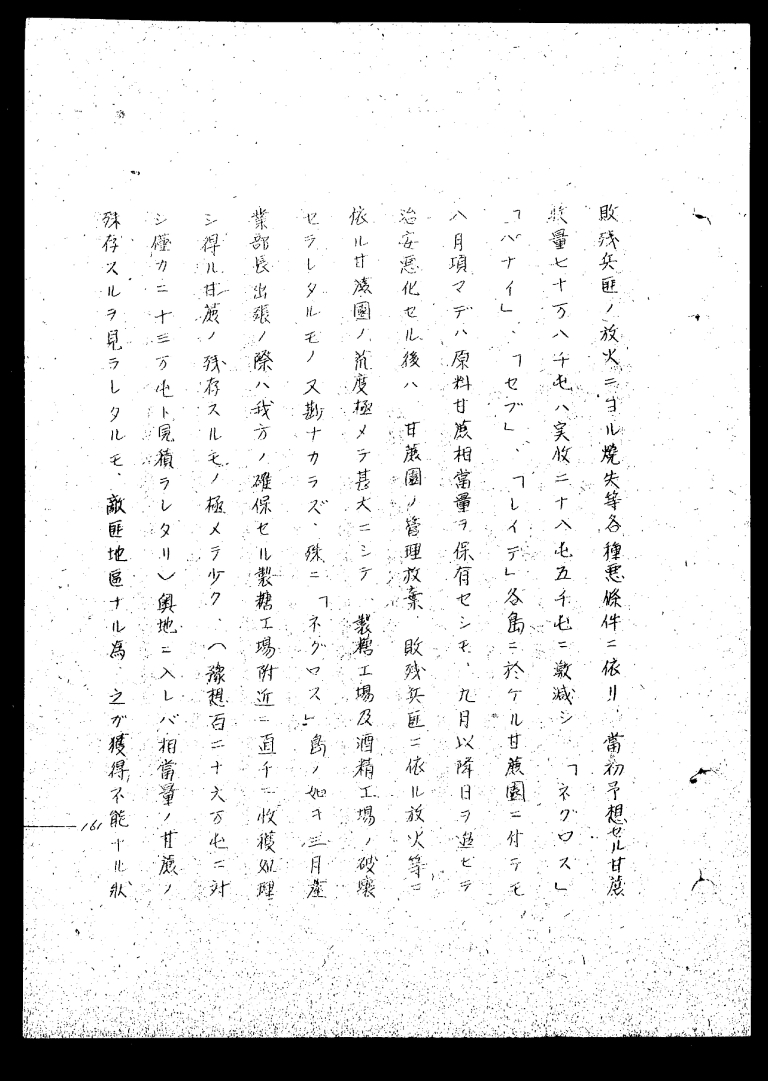 敗残兵匪ノ放火ニヨル焼失等各種悪條件ニ依リ、當初予想セル甘蔗
收量七十万八千屯ハ実收二十八屯五千屯ニ激減シ 「ネグロス」
「パナイ」、「セブ」、「レイテ」各島ニ於ケル甘蔗園ニ付テモ
八月頃マデハ原料甘蔗相當量ヲ保有セシモ、九月以降日ヲ追ヒテ
治安悪化セル後ハ 甘蔗園ノ管理放棄、敗残兵匪ニ依ル放火等ニ
依ル甘蔗園ノ荒廃極メテ甚大ニシテ、製糖工場及酒精工場ノ破壊
セラレタルモノ又尠ナカラズ、殊ニ「ネグロス」島ノ如キ三月産
業部長出張ノ際ハ我方ノ確保セル製糖工場附近ニ直チニ收穫処理
シ得ル甘蔗ノ残存スルモノ極メテ少ク、(豫想百二十六万屯ニ対
シ僅カニ十三万屯ト見積ラレタリ)奥地ニ入レバ相當量ノ甘蔗ノ
残存スルヲ見ラレタルモ、敵匪地區ナル為、之ガ獲得不能ナル状
161